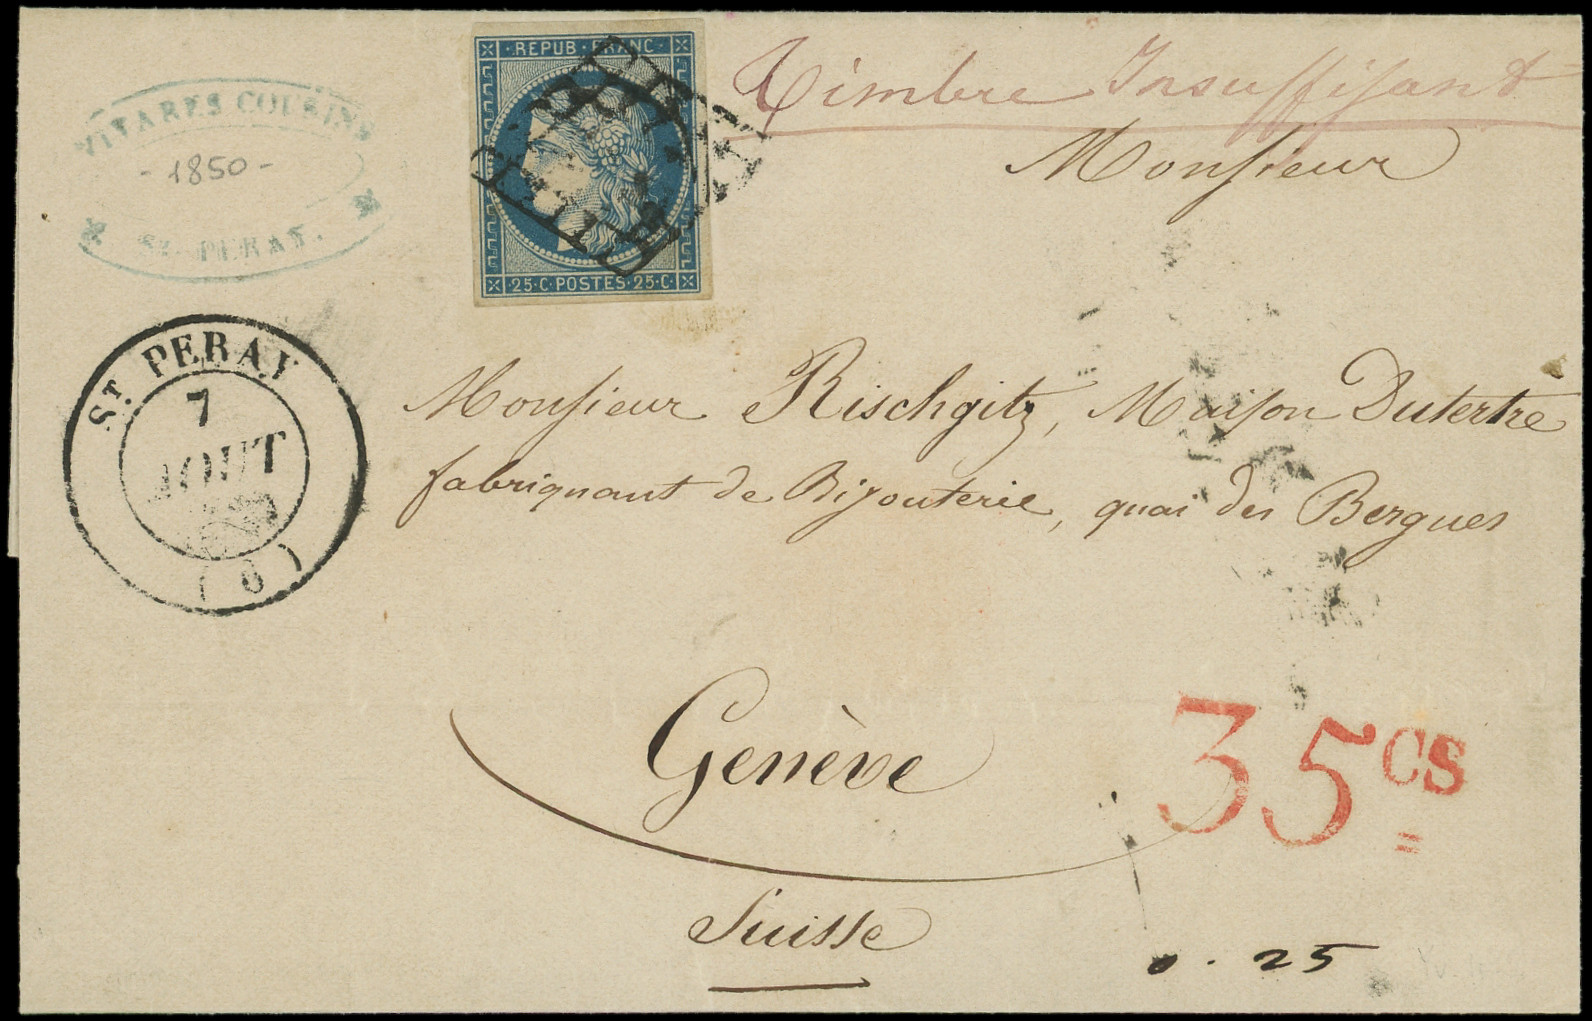 REPUB·FRANC·
25·C·POSTES·25·C·
COUSINS
-1850-
ST. PERAY.
Timbre Insuffisant
Monsieur
ST. PERAY
7
AOUT
(6)
Monsieur Rischgitz, Maison Dutertre
fabriquant de Bijouterie, quai des Bergues
Genève
35cs
Suisse
0.25